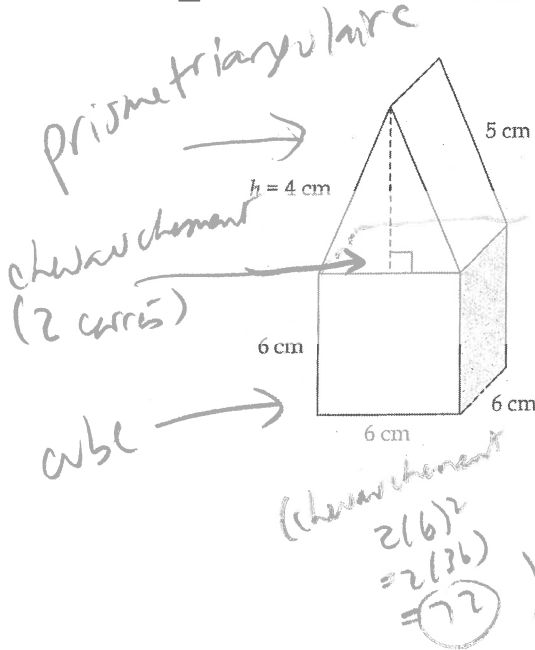 prisme triangulaire
5 cm
h = 4 cm
chevauchement
(2 carrés)
6 cm
cube
6 cm
6 cm
(chevauchement
2(6)²
=2(36)
=72
)